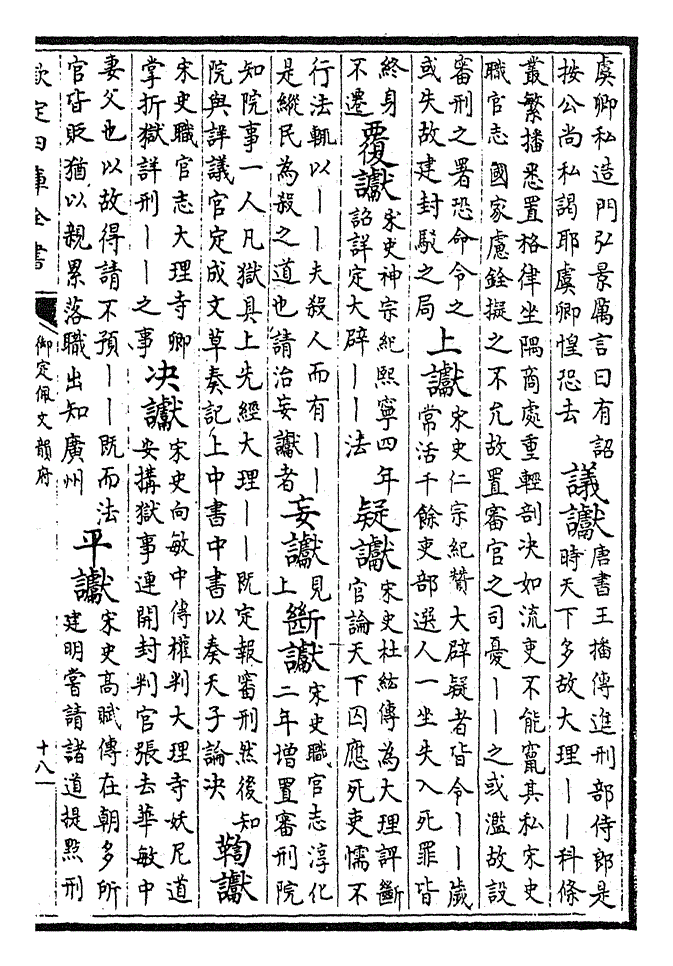 虞卿私造門弘景厲言曰有詔
按公尚私謁耶虞卿惶恐去
議讞
唐書王播傳進刑部侍郎是
時天下多故大理丨丨科條
叢繁播悉置格律坐隅商處重輕剖决如流吏不能竄其私宋史
職官志國家慮銓擬之不允故置審官之司憂丨丨之或濫故設
審刑之署恐命令之
或失故建封駮之局
上讞
宋史仁宗紀贊大辟疑者皆令丨丨歲
常活千餘吏部選人一坐失入死罪皆
終身
不遷
覆讞
宋史神宗紀熙寧四年
詔詳定大辟丨丨法
疑讞
宋史杜紘傳為大理評斷
官論天下囚應死吏懦不
行法輒以丨丨夫殺人而有丨丨
是縱民為殺之道也請治妄讞者
妄讞
見
上
斷讞
宋史職官志淳化
二年增置審刑院
知院事一人凡獄具上先經大理丨丨既定報審刑然後知
院與詳議官定成文草奏記上中書中書以奏天子論决
鞫讞
宋史職官志大理寺卿
掌折獄詳刑丨丨之事
决讞
宋史向敏中傳權判大理寺妖尼道
安搆獄事連開封判官張去華敏中
妻父也以故得請不預丨丨既而法
官皆貶猶以親累落職出知廣州
平讞
宋史高賦傳在朝多所
建明嘗請諸道提㸃刑
欽定四庫全書
御定佩文韻府
十八